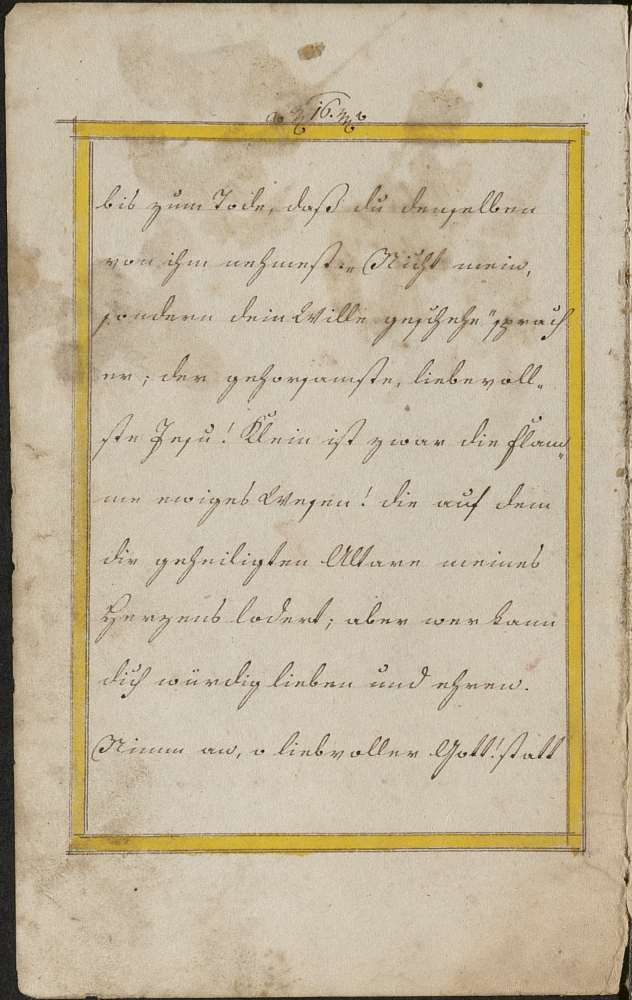 16.
bis zum Tode, daß du denselben
von ihm nehmest. „Nicht mein,
sondern dein Wille geschehe" sprach
er; der gehorsamste, liebevoll„
ste Jesu! Klein ist zwar die Flam„
me ewiges Wesen! die auf dem
dir geheiligten Altare meines
Herzens lodert; aber wer kann
dich würdig lieben und ehren.
Nimm an, o liebvoller Gott! statt